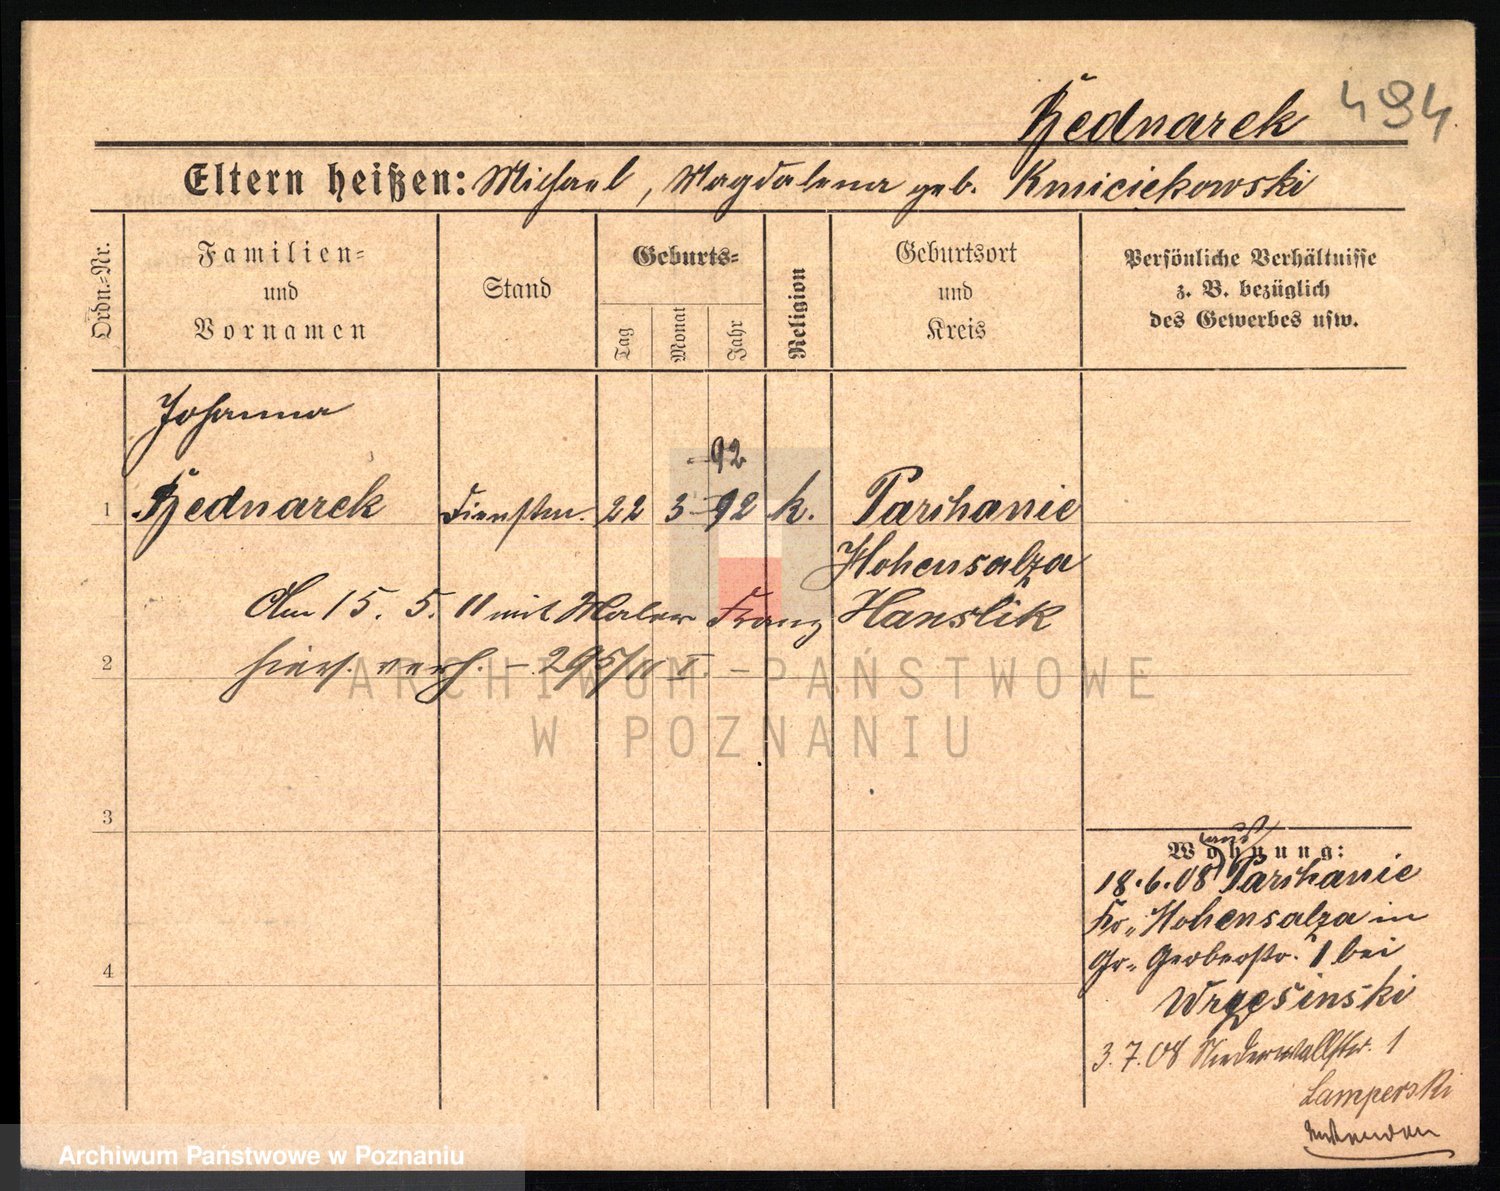 Bednarek 494
Eltern heißen: Michael, Magdalena geb. Kmiciekowski
Ordn.=Nr.
Familien=
und
Vornamen
Stand
Geburts=
Tag
Monat
Jahr
Religion
Geburtsort
und
Kreis
Persönliche Verhältnisse
z. B. bezüglich
des Gewerbes usw.
Johanna
92
1 Bednarek Dienstm. 22 3 92 k. Parchanie
Hohensalza
Am 15. 5. 11 mit Maler Franz Hanslik
2 hiers. verh. – 295/11 I. –
3
4
Wohnung:
aus
18.6.08 Parchanie
Kr. Hohensalza in
Gr. Gerberstr. 1 bei
Wrzesinski
3.7.08 Niederwallstr. 1
Lamperski
ARCHIWUM PAŃSTWOWE
W POZNANIU
Archiwum Państwowe w Poznaniu